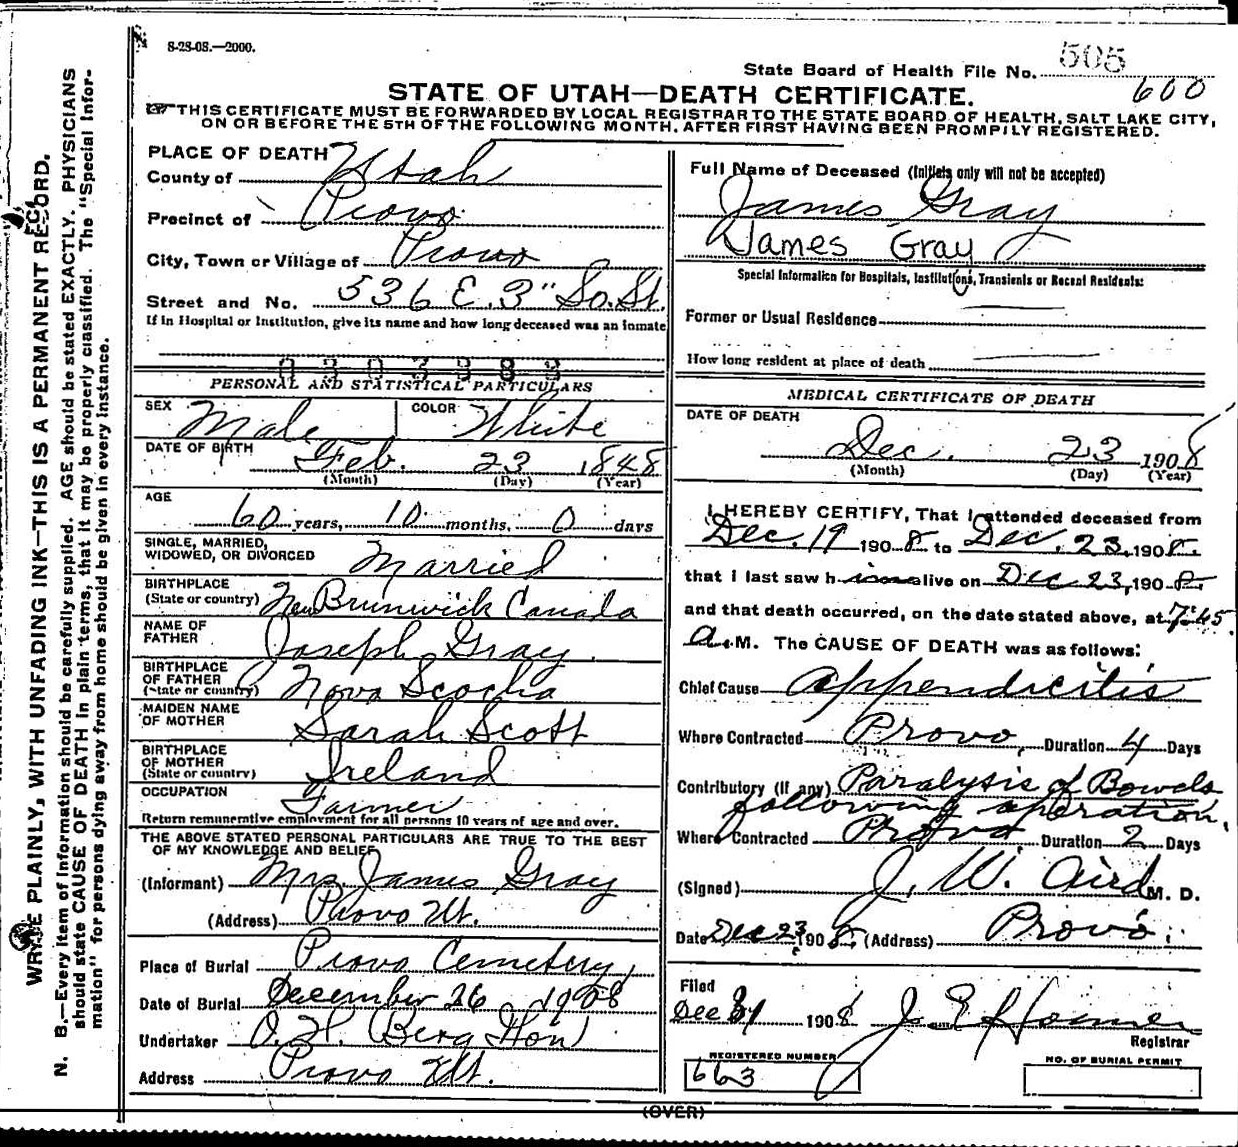 8-28-08.—2000.
505
State Board of Health File No.
600
STATE OF UTAH—DEATH CERTIFICATE.
THIS CERTIFICATE MUST BE FORWARDED BY LOCAL REGISTRAR TO THE STATE BOARD OF HEALTH, SALT LAKE CITY,
ON OR BEFORE THE 5TH OF THE FOLLOWING MONTH, AFTER FIRST HAVING BEEN PROMPILY REGISTERED.
WRITE PLAINLY, WITH UNFADING INK—THIS IS A PERMANENT RECORD.
N. B.—Every item of Information should be carefully supplied. AGE should be stated EXACTLY. PHYSICIANS
should state CAUSE OF DEATH in plain terms, that it may be properly classified. The "Special Infor-
mation" for persons dying away from home should be given in every instance.
PLACE OF DEATH
County of Utah
Precinct of Provo
City, Town or Village of Provo
Street and No. 536 E. 3" So. St.
If in Hospital or Institution, give its name and how long deceased was an inmate
0303883
PERSONAL AND STATISTICAL PARTICULARS
SEX Male COLOR White
DATE OF BIRTH Feb. 23 1848
(Month) (Day) (Year)
AGE
60 years, 10 months, 0 days
SINGLE, MARRIED,
WIDOWED, OR DIVORCED Married
BIRTHPLACE
(State or country) New Brunwick Canada
NAME OF
FATHER Joseph Gray.
BIRTHPLACE
OF FATHER
(State or country) Nova Scochia
MAIDEN NAME
OF MOTHER Sarah Scott
BIRTHPLACE
OF MOTHER
(State or country) Ireland
OCCUPATION Farmer
Return remunerative employment for all persons 10 years of age and over.
THE ABOVE STATED PERSONAL PARTICULARS ARE TRUE TO THE BEST
OF MY KNOWLEDGE AND BELIEF
(Informant) Mrs. James Gray
(Address) Provo Ut.
Place of Burial Provo Cemetery
Date of Burial December 26 1908
Undertaker O. H. Berg & Son
Address Provo Ut.
Full Name of Deceased (Initials only will not be accepted)
James Gray
James Gray
Special Information for Hospitals, Institutions, Transients or Recent Residents:
Former or Usual Residence
How long resident at place of death
MEDICAL CERTIFICATE OF DEATH
DATE OF DEATH
Dec. 23 1908
(Month) (Day) (Year)
I HEREBY CERTIFY, That I attended deceased from
Dec. 19 1908 to Dec. 23, 1908.
that I last saw him alive on Dec 23, 1908.
and that death occurred, on the date stated above, at 7:45
a. M. The CAUSE OF DEATH was as follows:
Chief Cause Appendicitis
Where Contracted Provo, Duration 4 Days
Contributory (if any) Paralysis of Bowels
following operation.
Where Contracted Provo, Duration 2 Days
(Signed) J. W. Aird M. D.
Date Dec 23 1908. (Address) Provo.
Filed
Dec 31 1908 J. E.
Registrar
REGISTERED NUMBER
663
NO. OF BURIAL PERMIT
(OVER)